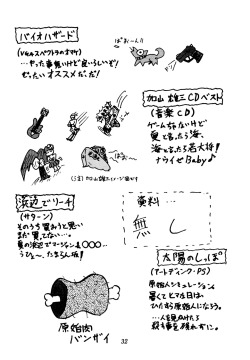 バイオハザード
(Virtualスペクトラのオマケ)
…やった事無いけど良いらしいぞ!
ぜったいオススメだ!だ!
ばおーん!!
加山雄三CDベスト
(音楽CD)
ゲームじゃないけど
夏と言ったら海、
海と言ったら若大将!
ナウイゼBaby♪
(注)加山雄三イメージ画です
浜辺でリーチ
(サターン)
そのうち買おうと思い
まだ買ってない…。
夏の浜辺でマージャン&○○○…
うひょ〜、たまらん哉!
資料…
無し
太陽のしっぽ
(アートディンク・PS)
原始人シミュレーション
暑くてヒマな日は
ひたすら原始人になろう。
…人を見かけたら
原始肉
バンザイ
32